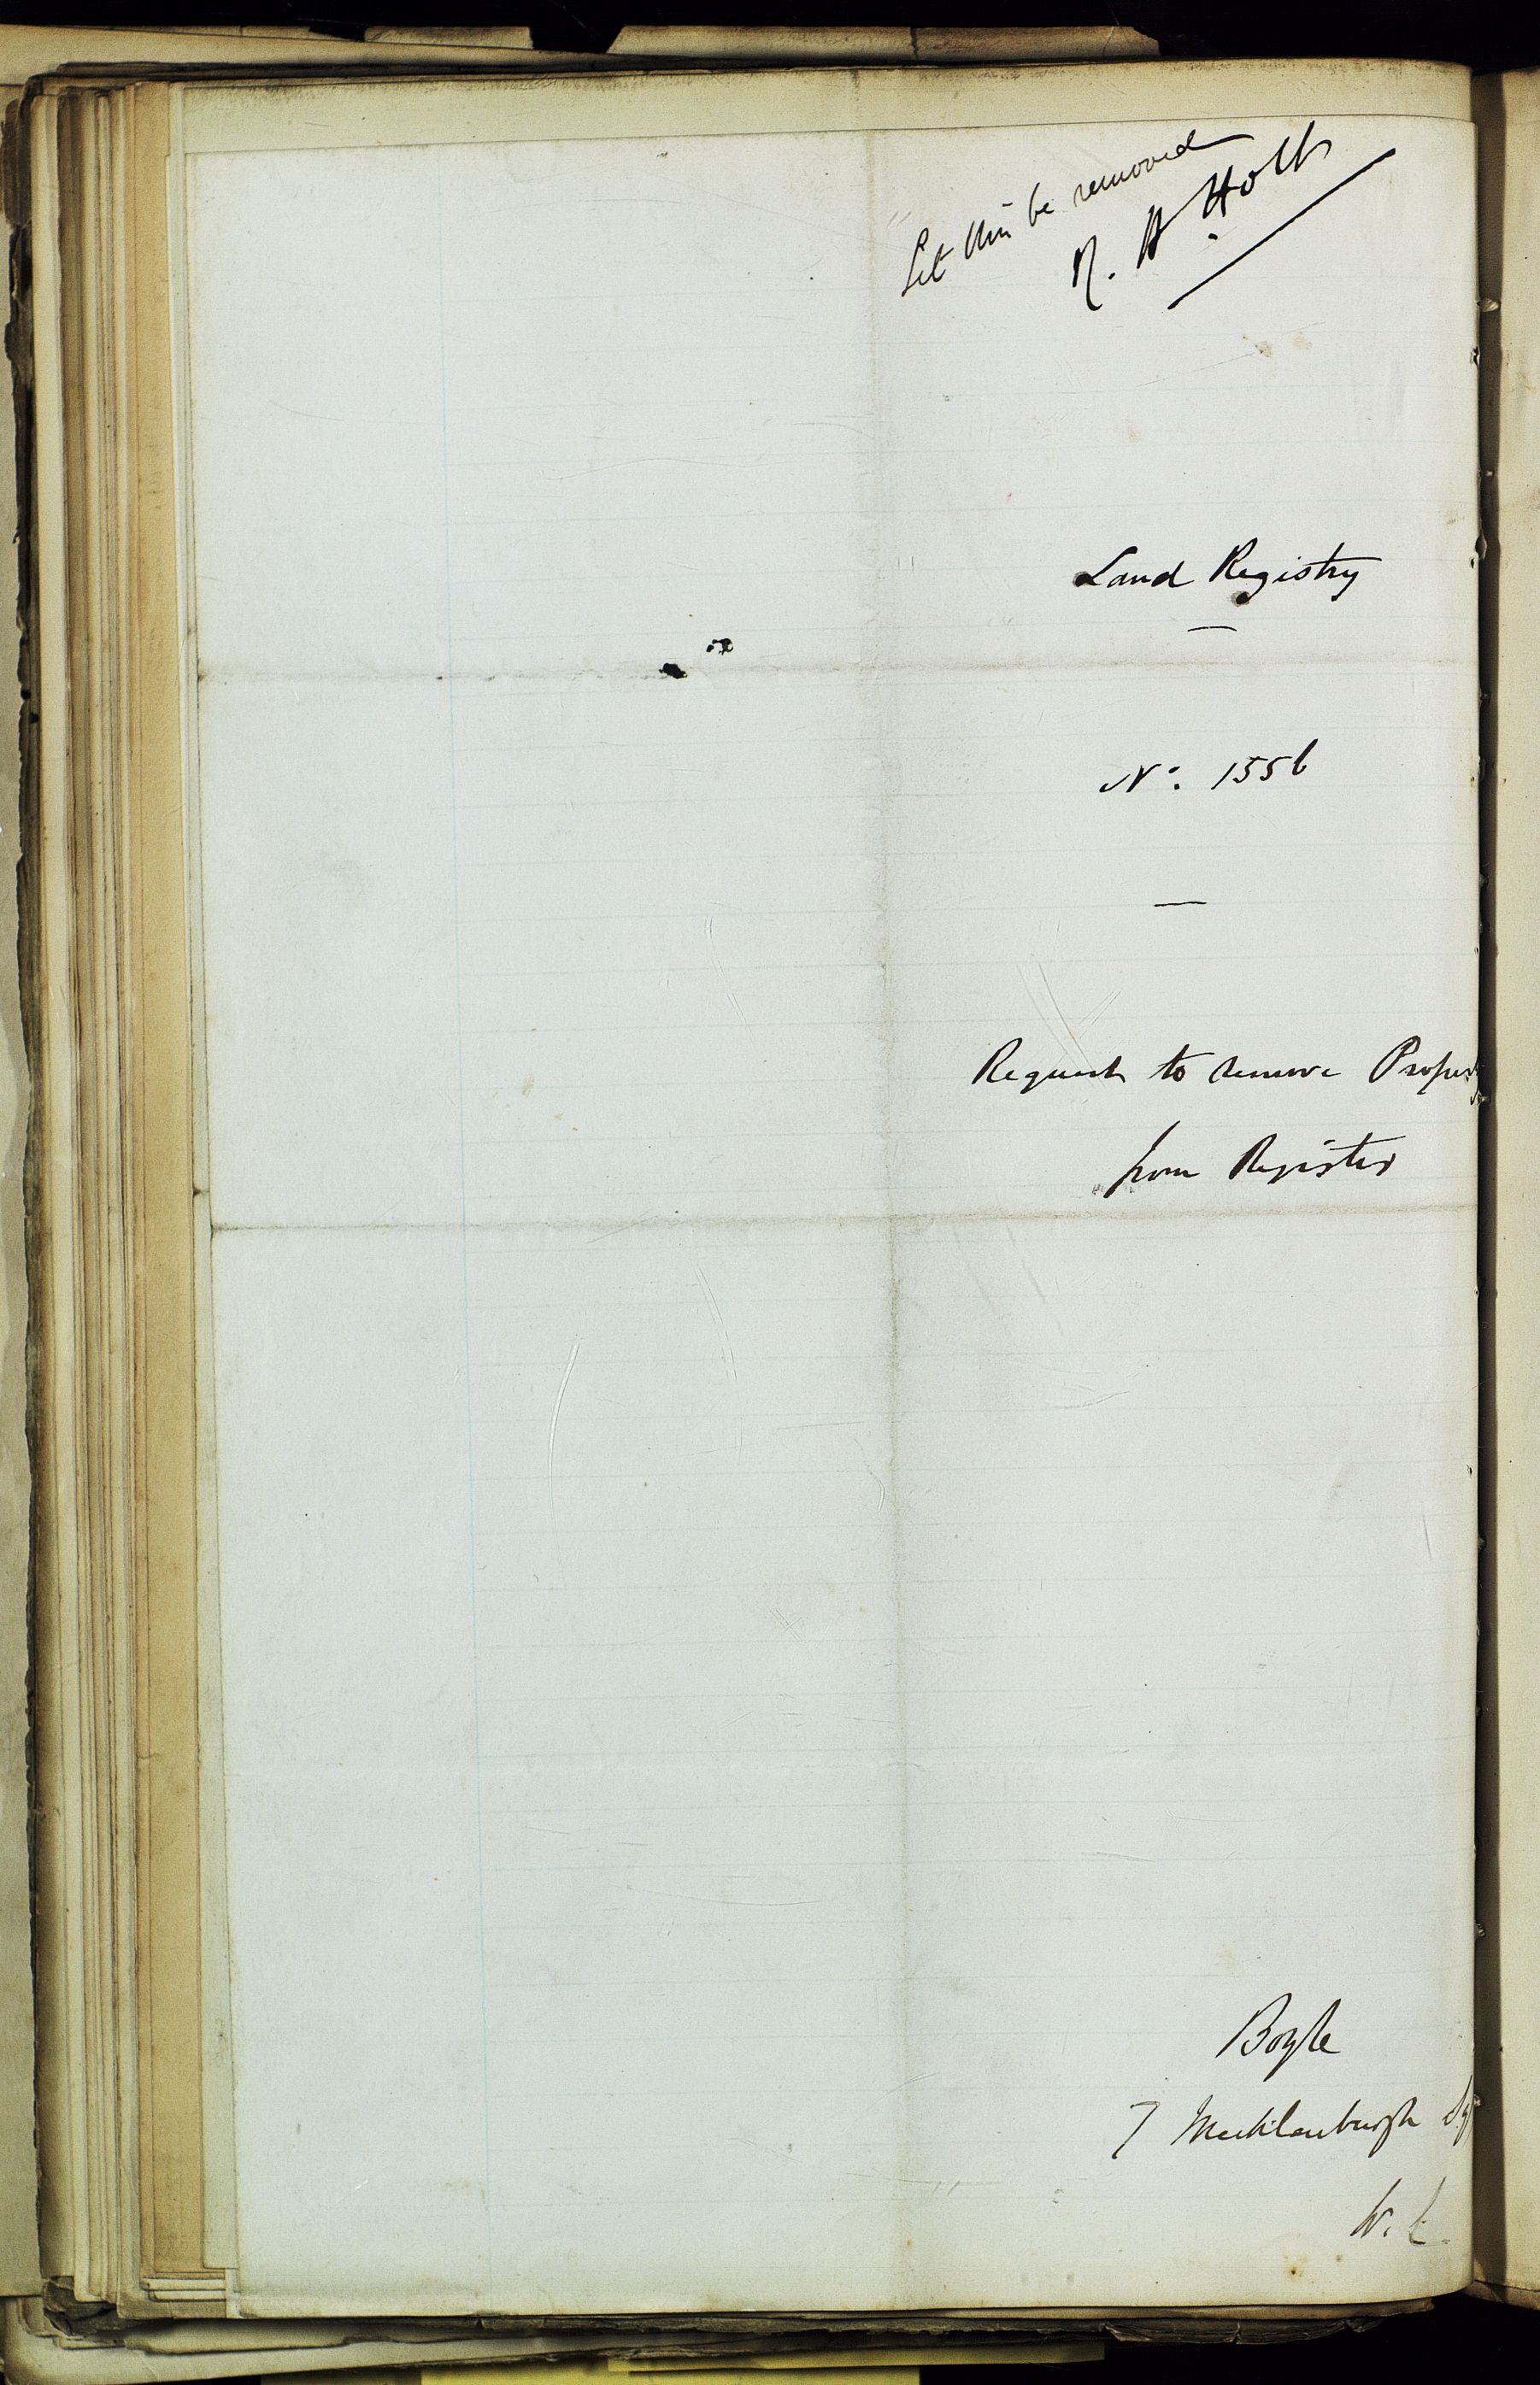 Let this be removed
R. H. Holt
Land Registry
No. 1556
Request to remove Property
from Register
Boyle
7 Mecklenburgh Sq
W.C.